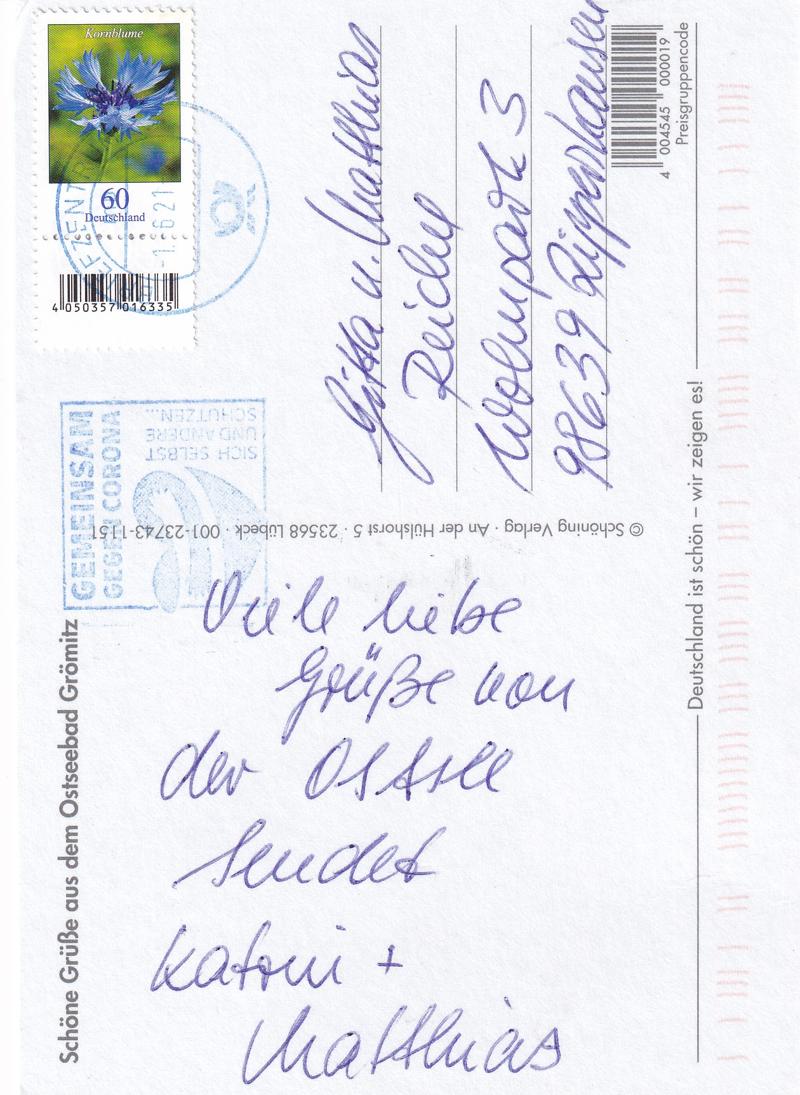 Kornblume
60
Deutschland
4 050357 016335
-1.6.21
GEMEINSAM
GEGEN CORONA
SICH SELBST
UND ANDERE
SCHÜTZEN...
Gitta u. Matthias
Reichel
Wohnpark 3
98639 Rippershausen
4 004545 000019
Preisgruppencode
© Schöning Verlag · An der Hülshorst 5 · 23568 Lübeck · 001-23743-1151
Deutschland ist schön – wir zeigen es!
Schöne Grüße aus dem Ostseebad Grömitz
Viele liebe
Grüße von
der Ostsee
sendet
Katrin +
Matthias